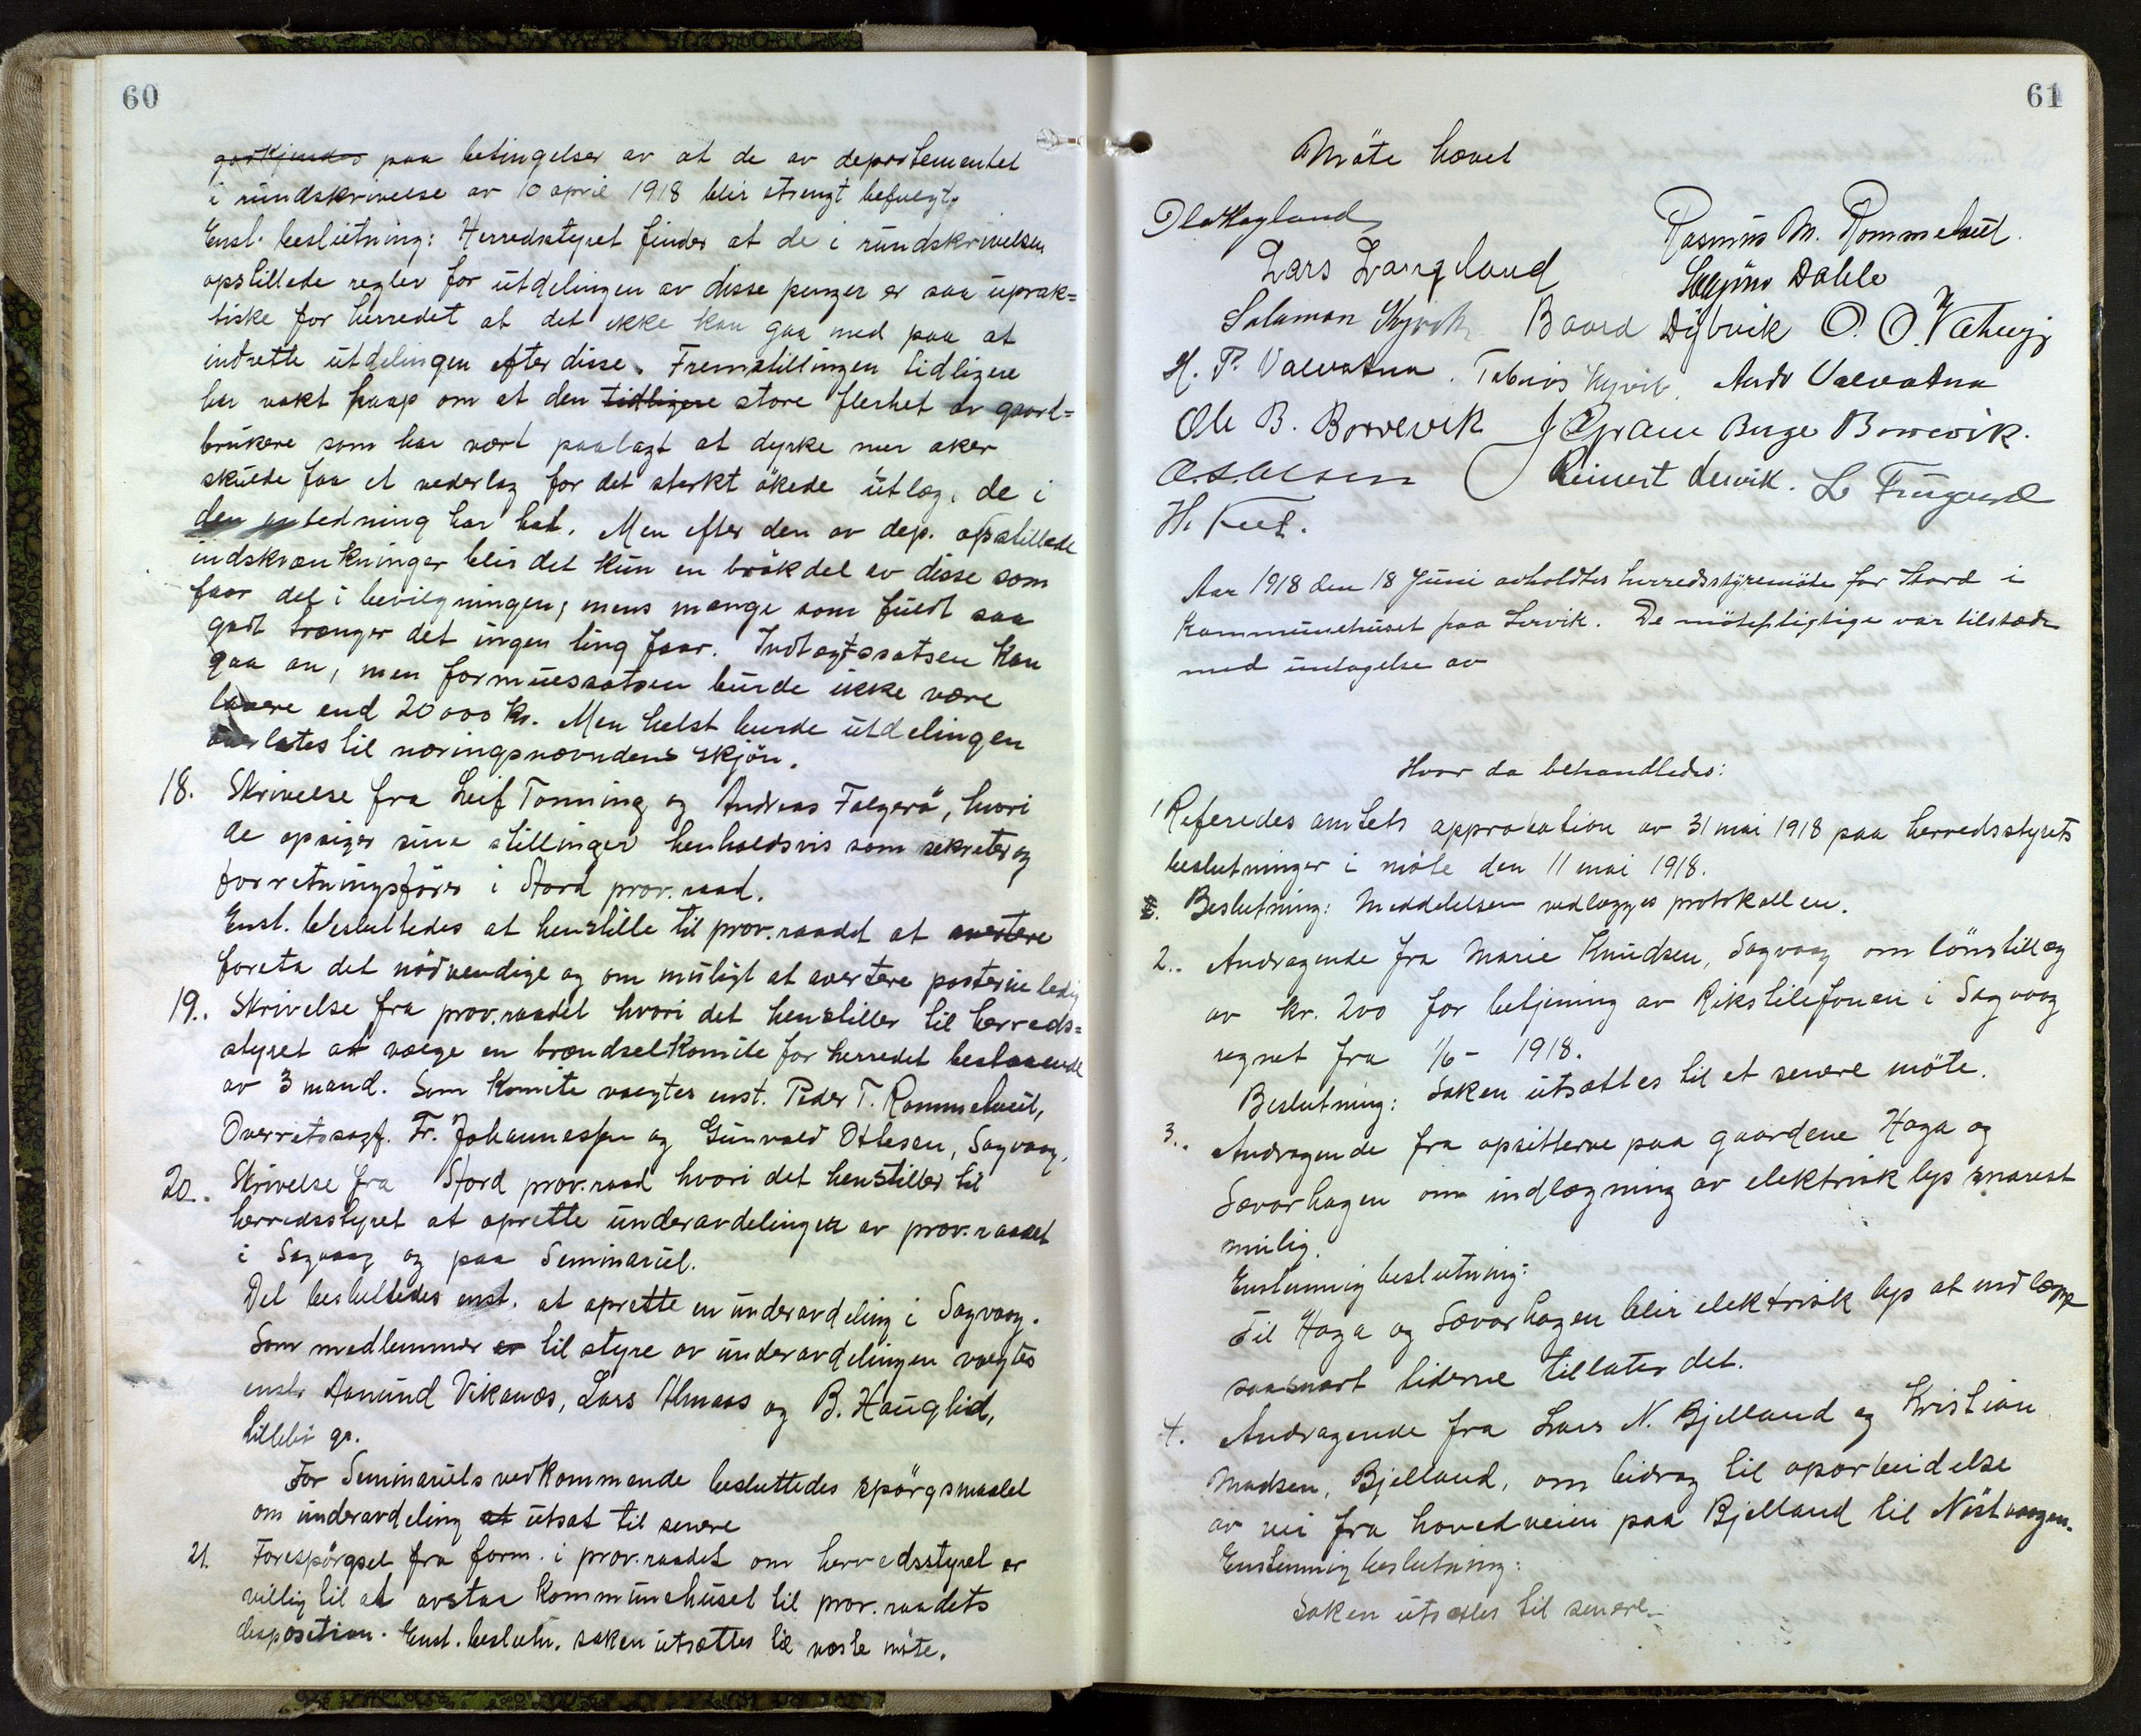 60
godkjendes paa betingelser av at de av departementet
i rundskrivelse av 10 april 1918 blir strengt befulgt,
Enst. beslutning: Herredsstyret finder at de i rundskrivelsen
opstillede regler for utdelingen av disse penger er saa uprak=
tiske for herredet at det ikke kan gaa med paa at
indrette utdelingen efter disse. Fremstillingen tidligere
har vakt haap om at den tidligere store flerhet av gaard=
brukere som har vært paalagt at dyrke mer aker
skulde faa et vederlag for det sterkt ökede utlæg, de i
den anledning har hat. Men efter den av dep. opstillede
indskrænkninger blir det kun en brökdel av disse som
faar del i bevilgningen, mens mange som fuldt saa
godt trænger det ingen ting faar. Indtægtssatsen kan
gaa an, men formuessatsen burde ikke være
lavere end 20000 kr. Men helst burde utdelingen
overlates til næringsnævndens skjön.
18. Skrivelse fra Leif Tonning og Andreas Falgerö, hvori
de opsiger sine stillinger henholdsvis som sekretær og
forretningsförer i Stord prov.raad.
Enst. besluttedes at henstille til prov.raadet at avertere
foreta det nödvendige og om muligt at avertere posterne ledig
19.. Skrivelse fra prov.raadet hvori det henstiller til herreds=
styret at vælge en brændselkomite for herredet bestaaende
av 3 mand. Som komite valgtes enst. Peder T. Rommetveit,
Overretssagf. Fr. Johannessen og Gunvald Ottesen, Sagvaag.
20.. Skrivelse fra Stord prov.raad hvori det henstiller til
herredsstyret at oprette underavdelingen av prov.raadet
i Sagvaag og paa Seminariet.
Det besluttedes enst. at oprette en underavdeling i Sagvaag.
Som medlemmer av til styre av underavdelingen valgtes
enst. Aamund Vikanæs, Lars Almaas og B. Hauglid,
Litlebö gr.
For Seminariets vedkommende besluttedes spörgsmaalet
om underavdeling at utsat til senere
21. Forespörgsel fra form. i prov.raadet om herredsstyret er
villig til at avstaa kommunehuset til prov.raadets
disposition. Enst. beslutn. saken utsættes til næste möte.
61
Möte hævet
Ola Hagland
Rasmus M. Rommetveit.
Lars Langeland
Dahle
Salamon Kyvik Baard Dybvik O. O.
H. P. Valvatna. Tobias Kyvik. Andr Valvatna
Ole B. Borrevik J Bugge Borrevik.
O. S. Olsen Reinert Lervik. L
H.
Aar 1918 den 18 Juni avholdtes herredsstyremöte for Stord i
Kommunehuset paa Lervik. De mötepligtige var tilstæde
med undtagelse av
Hvor da behandledes:
1 Referedes amtets approbation av 31 mai 1918 paa herredsstyrets
beslutninger i möte den 11 mai 1918.
Beslutning: Meddelelsen vedlægges protokollen.
2.. Andragende fra Marie Knudsen, Sagvaag om lönstillæg
av kr. 200 for betjening av Rikstelefonen i Sagvaag
regnet fra 1/6 - 1918.
Beslutning: Saken utsættes til et senere möte.
3.. Andragende fra opsitterne paa gaardene Haga og
Sævarhagen om indlægning av elektrisk lys snarest
mulig.
Enstemmig beslutning:
Til Haga og Sævarhagen blir elektrisk lys at indlægge
saasnart tiderne tillater det.
4. Andragende fra Lars N. Bjelland og Kristian
Madsen, Bjelland, om bidrag til oparbeidelse
av vei fra hovedveien paa Bjelland til Nöstvaagen.
Enstemmig beslutning:
Saken utsættes til senere.